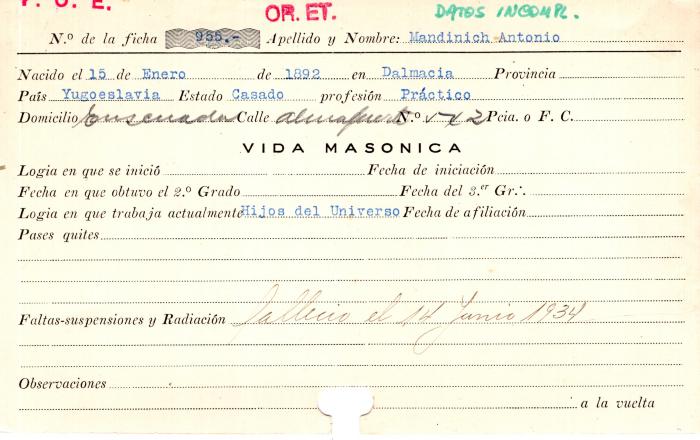 F. O. E. OR. ET. DATOS INCOMPL.
N.º de la ficha 955.- Apellido y Nombre: Mandinich Antonio
Nacido el 15 de Enero de 1892 en Dalmacia Provincia
País Yugoeslavia Estado Casado profesión Práctico
Domicilio Ensenada Calle Almafuerte N.º Pcia. o F. C.
VIDA MASONICA
Logia en que se inició Fecha de iniciación
Fecha en que obtuvo el 2.º Grado Fecha del 3.er Gr∴
Logia en que trabaja actualmente Hijos del Universo Fecha de afiliación
Pases quites
Faltas-suspensiones y Radiación Fallecio el 14 Junio 1934
Observaciones
a la vuelta